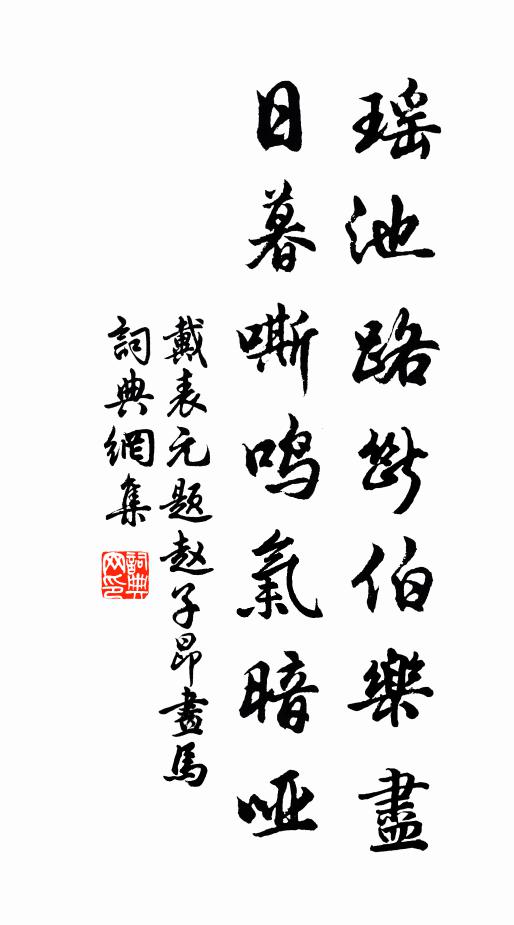 瑶池路斷伯樂盡
日暮嘶鳴氣暗啞
戴表元题赵子昂畫馬
詞典網集
詞典网印